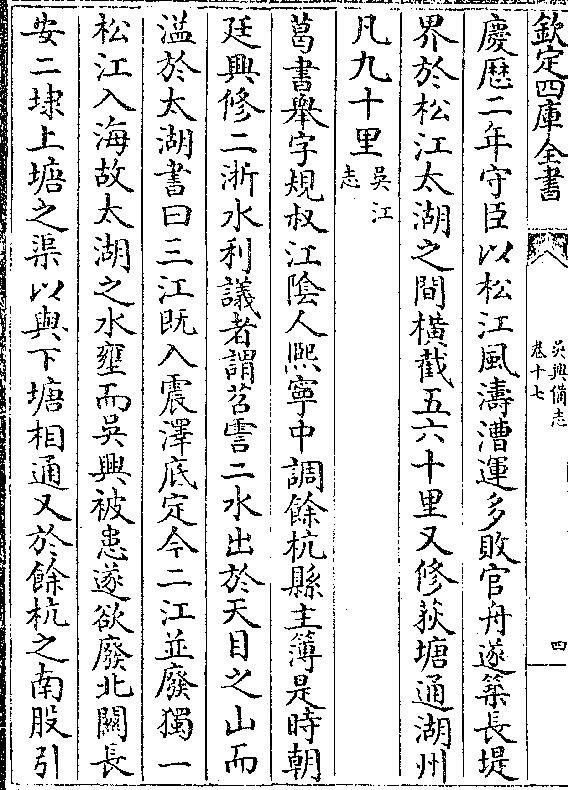 欽定四庫全書
吳興備志
卷十七
四
慶歷二年守臣以松江風濤漕運多敗官舟遂築長堤
界於松江太湖之間橫截五六十里又修荻塘通湖州
凡九十里吳江志
葛書舉字規叔江陰人熈寧中調餘杭縣主簿是時朝
廷興修二浙水利議者謂苕霅二水出於天目之山而
溢於太湖書曰三江既入震澤底定今二江並廢獨一
松江入海故太湖之水壅而吳興被患遂欲廢北關長
安二埭上塘之渠以與下塘相通又於餘杭之南股引